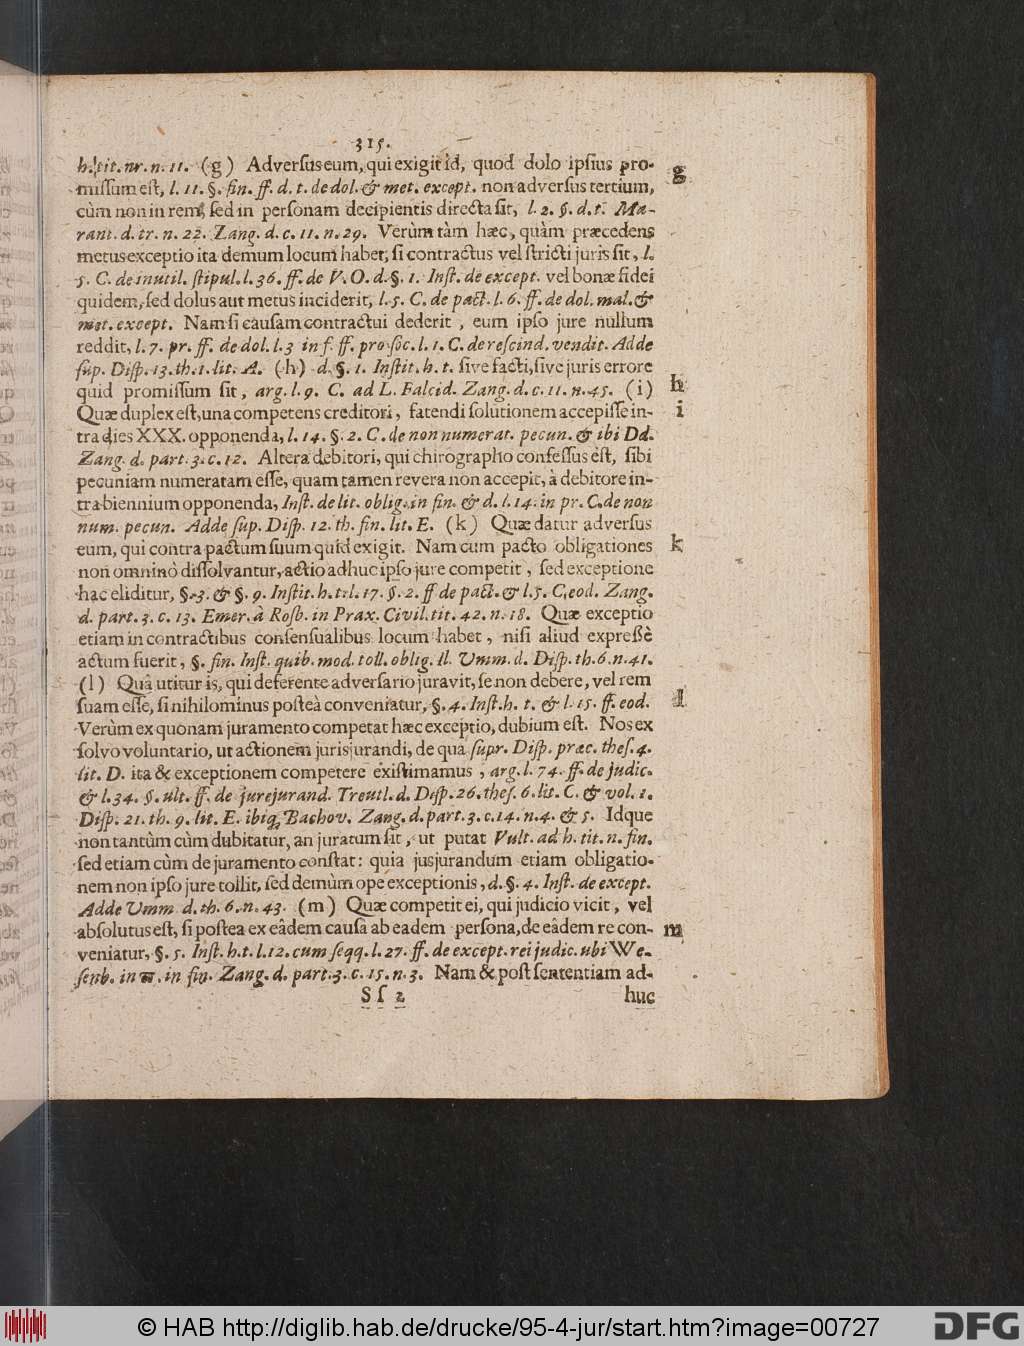 315.
h. tit. nr. n. 11. (g) Adverſus eum, qui exigit id, quod dolo ipſius pro-
g
miſſum eſt, l. 11. §. fin. ff. d. t. de dol. & met. except. non adverſus tertium,
cùm non in rem, ſed in perſonam decipientis directa ſit, l. 2. §. d. t. Ma-
rant. d. tr. n. 22. Zang. d. c. 11. n. 29. Verùm tàm hæc, quàm præcedens
metus exceptio ita demum locum habet, ſi contractus vel ſtricti juris ſit, l.
5. C. de inutil. ſtipul. l. 36. ff. de V. O. d. §. 1. Inſt. de except. vel bonæ fidei
quidem, ſed dolus aut metus inciderit, l. 5. C. de pact. l. 6. ff. de dol. mal. &
met. except. Nam ſi cauſam contractui dederit, eum ipſo jure nullum
reddit, l. 7. pr. ff. de dol. l. 3 in f. ff. pro ſoc. l. 1. C. de reſcind. vendit. Adde
ſup. Diſp. 13. th. 1. lit. A. (h) d. §. 1. Inſtit. h. t. ſive facti, ſive juris errore
h
quid promiſſum ſit, arg. l. 9. C. ad L. Falcid. Zang. d. c. 11. n. 45. (i)
i
Quæ duplex eſt, una competens creditori, fatendi ſolutionem accepiſſe in-
tra dies XXX. opponenda, l. 14. §. 2. C. de non numerat. pecun. & ibi Dd.
Zang. d. part. 3. c. 12. Altera debitori, qui chirographo confeſſus eſt, ſibi
pecuniam numeratam eſſe, quam tamen revera non accepit, à debitore in-
tra biennium opponenda, Inſt. de lit. oblig. in fin. & d. l. 14. in pr. C. de non
num. pecun. Adde ſup. Diſp. 12. th. fin. lit. E. (k) Quæ datur adverſus
k
eum, qui contra pactum ſuum quid exigit. Nam cum pacto obligationes
non omninò diſſolvantur, actio adhuc ipſo jure competit, ſed exceptione
hac eliditur, §. 3. & §. 9. Inſtit. h. t. l. 17. §. 2. ff de pact. & l. 5. C. eod. Zang.
d. part. 3. c. 13. Emer. à Roſb. in Prax. Civil. tit. 42. n. 18. Quæ exceptio
etiam in contractibus conſenſualibus locum habet, niſi aliud expreſſè
actum fuerit, §. fin. Inſt. quib. mod. toll. oblig. Il. Umm. d. Diſp. th. 6. n. 41.
(l) Quâ utitur is, qui deferente adverſario juravit, ſe non debere, vel rem
l
ſuam eſſe, ſi nihilominus poſteà conveniatur, §. 4. Inſt. h. t. & l. 15. ff. eod.
Verùm ex quonam juramento competat hæc exceptio, dubium eſt. Nos ex
ſolvo voluntario, ut actionem jurisjurandi, de qua ſupr. Diſp. præc. theſ. 4.
lit. D. ita & exceptionem competere exiſtimamus, arg. l. 74. ff. de judic.
& l. 34. §. ult. ff. de jurejurand. Treutl. d. Diſp. 26. theſ. 6. lit. C. & vol. 1.
Diſp. 21. th. 9. lit. E. ibiq; Bachov. Zang. d. part. 3. c. 14. n. 4. & 5. Idque
non tantùm cùm dubitatur, an juratum ſit, ut putat Vult. ad h. tit. n. fin.
ſed etiam cùm de juramento conſtat: quia jusjurandum etiam obligatio-
nem non ipſo jure tollit, ſed demùm ope exceptionis, d. §. 4. Inſt. de except.
Adde Umm d. th. 6. n. 43. (m) Quæ competit ei, qui judicio vicit, vel
abſolutus eſt, ſi poſtea ex eâdem cauſâ ab eadem perſona, de eâdem re con-
m
veniatur, §. 5. Inſt. h. t. l. 12. cum ſeqq. l. 27. ff. de except. rei judic. ubi We-
ſenb. in ϖ. in fin. Zang. d. part. 3. c. 15. n. 3. Nam & poſt ſententiam ad-
S ſ 2 huc
© HAB http://diglib.hab.de/drucke/95-4-jur/start.htm?image=00727
DFG